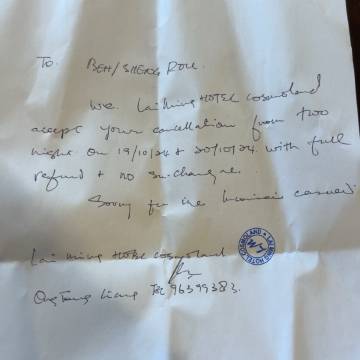 To BEH/SHENG ROU.
We. Lai Ming HOTEL Cosmoland
accept your cancellation from two
night on 19/10/24 & 20/10/24 with full
refund & no surcharge.
Sorry for the caused
Lai Ming HOTEL Cosmoland
Ong Liang Tel 96399383.
LAI MING HOTEL COSMOLAND